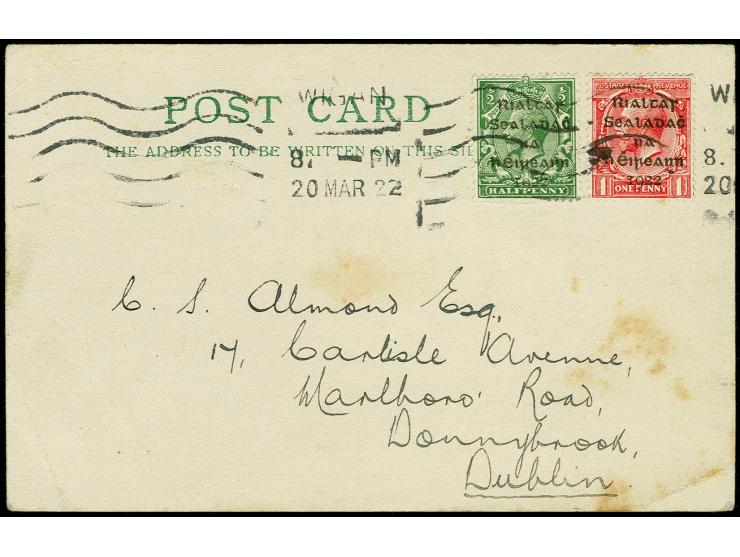 POST CARD
THE ADDRESS TO BE WRITTEN ON THIS SI
WIGAN
8. — PM
20 MAR 22
½ ½
Rialtas
Sealadaċ
na
hÉireann
1922
HALFPENNY
POSTAGE REVENUE
Rialtas
Sealadaċ
na
hÉireann
1922
1 ONE PENNY 1
W
8.
20
C. S. Almond Esq,
17, Carlisle Avenue,
Marlboro' Road,
Donnybrook,
Dublin.